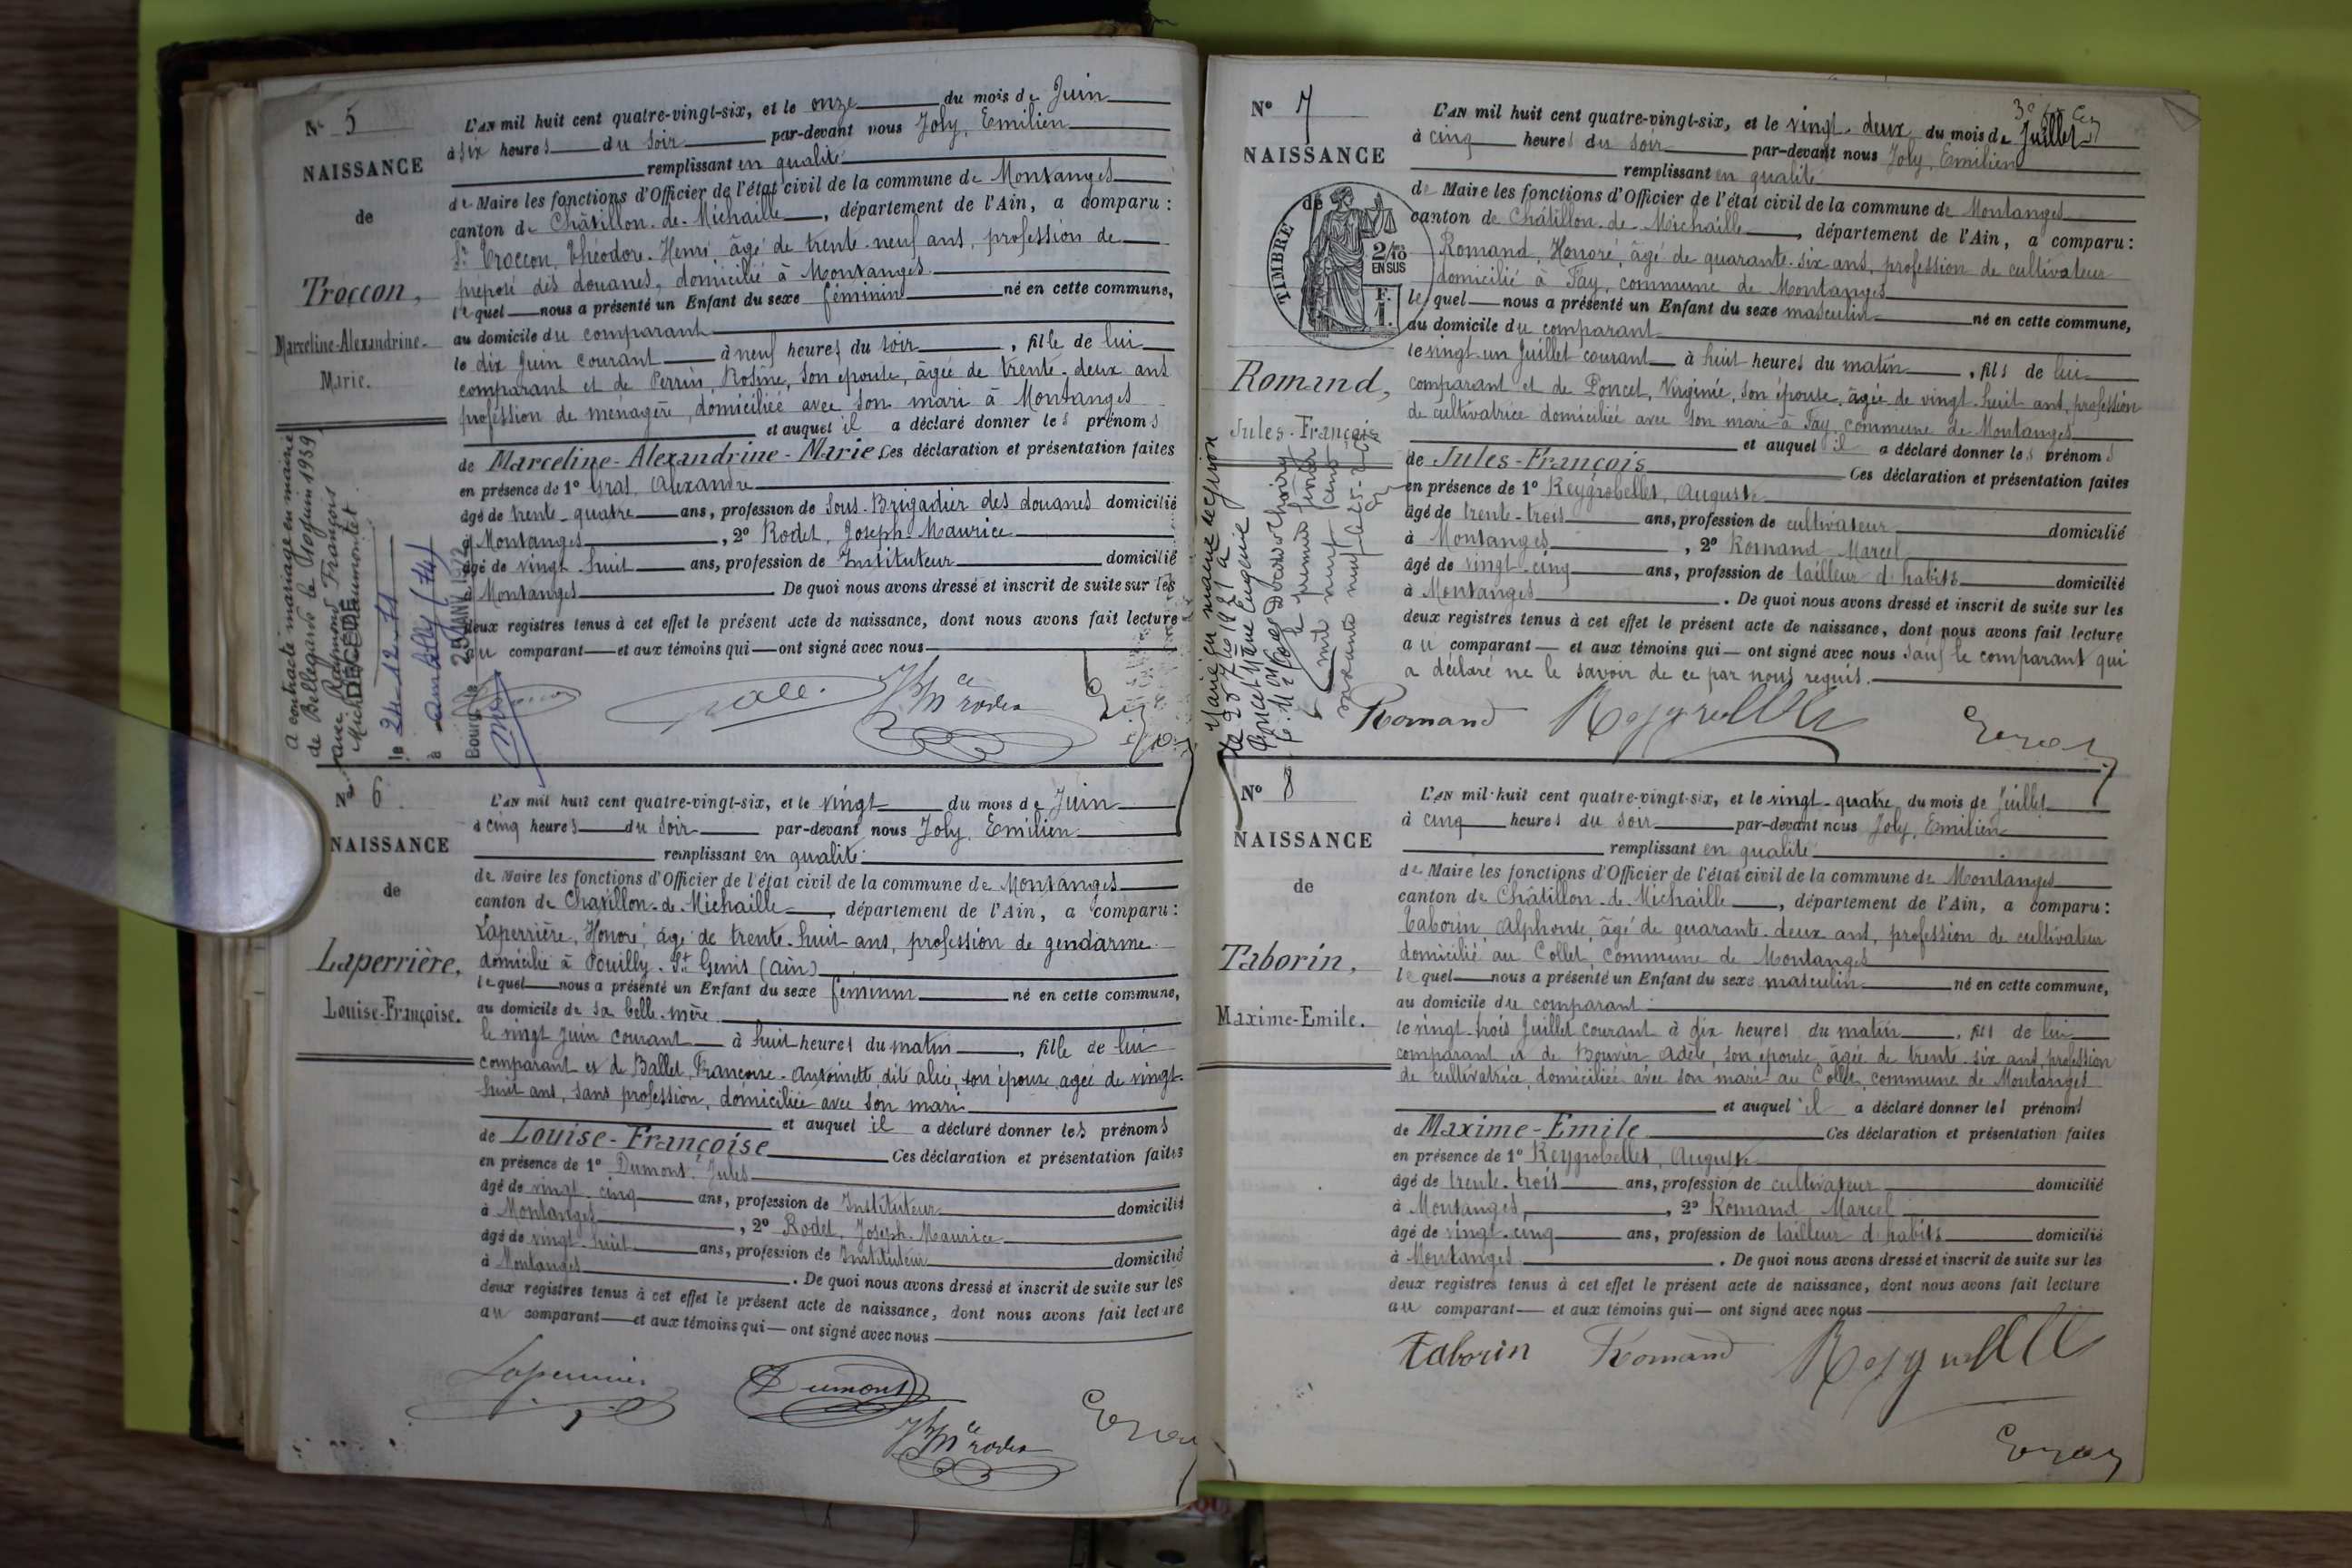 N° 5
NAISSANCE
de
Troccon,
Marceline-Alexandrine-
Marie.
L'AN mil huit cent quatre-vingt-six, et le onze du mois de Juin
à six heures du soir par-devant nous Joly, Emilien
remplissant en qualité
de Maire les fonctions d'Officier de l'état civil de la commune de Montanges
canton de Châtillon-de-Michaille, département de l'Ain, a comparu:
Sr Troccon, Théodore-Henri, âgé de trente-neuf ans, profession de
préposé des douanes, domicilié à Montanges
lequel nous a présenté un Enfant du sexe féminin né en cette commune,
au domicile du comparant
le dix Juin courant à neuf heures du soir, fille de lui
comparant et de Perrin, Rosine, son épouse, âgée de trente-deux ans
profession de ménagère, domiciliée avec son mari à Montanges
et auquel il a déclaré donner les prénoms
de Marceline-Alexandrine-Marie Ces déclaration et présentation faites
en présence de 1° Gras, Alexandre
âgé de trente-quatre ans, profession de Sous-Brigadier des douanes domicilié
à Montanges, 2° Rodet, Joseph-Maurice
âgé de vingt-huit ans, profession de Instituteur domicilié
à Montanges De quoi nous avons dressé et inscrit de suite sur les
deux registres tenus à cet effet le présent acte de naissance, dont nous avons fait lecture
au comparant et aux témoins qui ont signé avec nous
A contracté mariage en mairie
de Bellegarde le juin 1939
avec Raymond François
Michel Chaumontet
DÉCÉDÉ
le 24-12-71
à Ambilly (74)
Bourg, le 25 JANV 1972
N° 6
NAISSANCE
de
Laperrière,
Louise-Françoise.
L'AN mil huit cent quatre-vingt-six, et le vingt du mois de Juin
à cinq heures du soir par-devant nous Joly, Emilien
remplissant en qualité
de Maire les fonctions d'Officier de l'état civil de la commune de Montanges
canton de Chatillon-de-Michaille, département de l'Ain, a comparu:
Laperrière, Honoré, âgé de trente-huit ans, profession de gendarme
domicilié à Pouilly-St Genis (Ain)
lequel nous a présenté un Enfant du sexe féminin né en cette commune,
au domicile de sa belle-mère
le vingt Juin courant à huit heures du matin, fille de lui
comparant et de Ballet, Françoise-Antoinette dite Alice, son épouse âgée de vingt-
huit ans, sans profession, domiciliée avec son mari
et auquel il a déclaré donner les prénoms
de Louise-Françoise Ces déclaration et présentation faites
en présence de 1° Dumont, Jules
âgé de vingt-cinq ans, profession de Instituteur domicilié
à Montanges, 2° Rodet, Joseph-Maurice
âgé de vingt-huit ans, profession de Instituteur domicilié
à Montanges. De quoi nous avons dressé et inscrit de suite sur les
deux registres tenus à cet effet le présent acte de naissance, dont nous avons fait lecture
au comparant et aux témoins qui ont signé avec nous
Laperrière Dumont
N° 7
NAISSANCE
de
TIMBRE
2/10 EN SUS
F. 1.
Romand,
Jules-François
L'AN mil huit cent quatre-vingt-six, et le vingt-deux du mois de Juillet
à cinq heures du soir par-devant nous Joly, Emilien
remplissant en qualité
de Maire les fonctions d'Officier de l'état civil de la commune de Montanges
canton de Châtillon-de-Michaille, département de l'Ain, a comparu:
Romand, Honoré, âgé de quarante-six ans, profession de cultivateur
domicilié à Fay, commune de Montanges
lequel nous a présenté un Enfant du sexe masculin né en cette commune,
au domicile du comparant
le vingt-un Juillet courant à huit heures du matin, fils de lui
comparant et de Poncet, Virginie, son épouse, âgée de vingt-huit ans, profession
de cultivatrice domiciliée avec son mari à Fay, commune de Montanges
et auquel il a déclaré donner les prénoms
de Jules-François Ces déclaration et présentation faites
en présence de 1° Reygrobellet, Auguste
âgé de trente-trois ans, profession de cultivateur domicilié
à Montanges, 2° Romand Marcel
âgé de vingt-cinq ans, profession de tailleur d'habits domicilié
à Montanges. De quoi nous avons dressé et inscrit de suite sur les
deux registres tenus à cet effet le présent acte de naissance, dont nous avons fait lecture
au comparant et aux témoins qui ont signé avec nous sauf le comparant qui
a déclaré ne le savoir de ce par nous requis.
Romand Reygrobellet
Poncet Marie Eugénie
N° 8
NAISSANCE
de
Taborin,
Maxime-Emile.
L'AN mil huit cent quatre-vingt-six, et le vingt-quatre du mois de Juillet
à cinq heures du soir par-devant nous Joly, Emilien
remplissant en qualité
de Maire les fonctions d'Officier de l'état civil de la commune de Montanges
canton de Châtillon-de-Michaille, département de l'Ain, a comparu:
Taborin, Alphonse, âgé de quarante-deux ans, profession de cultivateur
domicilié au Collet, commune de Montanges
lequel nous a présenté un Enfant du sexe masculin né en cette commune,
au domicile du comparant
le vingt-trois Juillet courant à dix heures du matin, fils de lui
comparant et de Bouvier Adèle, son épouse, âgée de trente-six ans, profession
de cultivatrice, domiciliée avec son mari au Collet, commune de Montanges
et auquel il a déclaré donner les prénoms
de Maxime-Emile Ces déclaration et présentation faites
en présence de 1° Reygrobellet, Auguste
âgé de trente-trois ans, profession de cultivateur domicilié
à Montanges, 2° Romand Marcel
âgé de vingt-cinq ans, profession de tailleur d'habits domicilié
à Montanges. De quoi nous avons dressé et inscrit de suite sur les
deux registres tenus à cet effet le présent acte de naissance, dont nous avons fait lecture
au comparant et aux témoins qui ont signé avec nous
Taborin Romand Reygrobellet